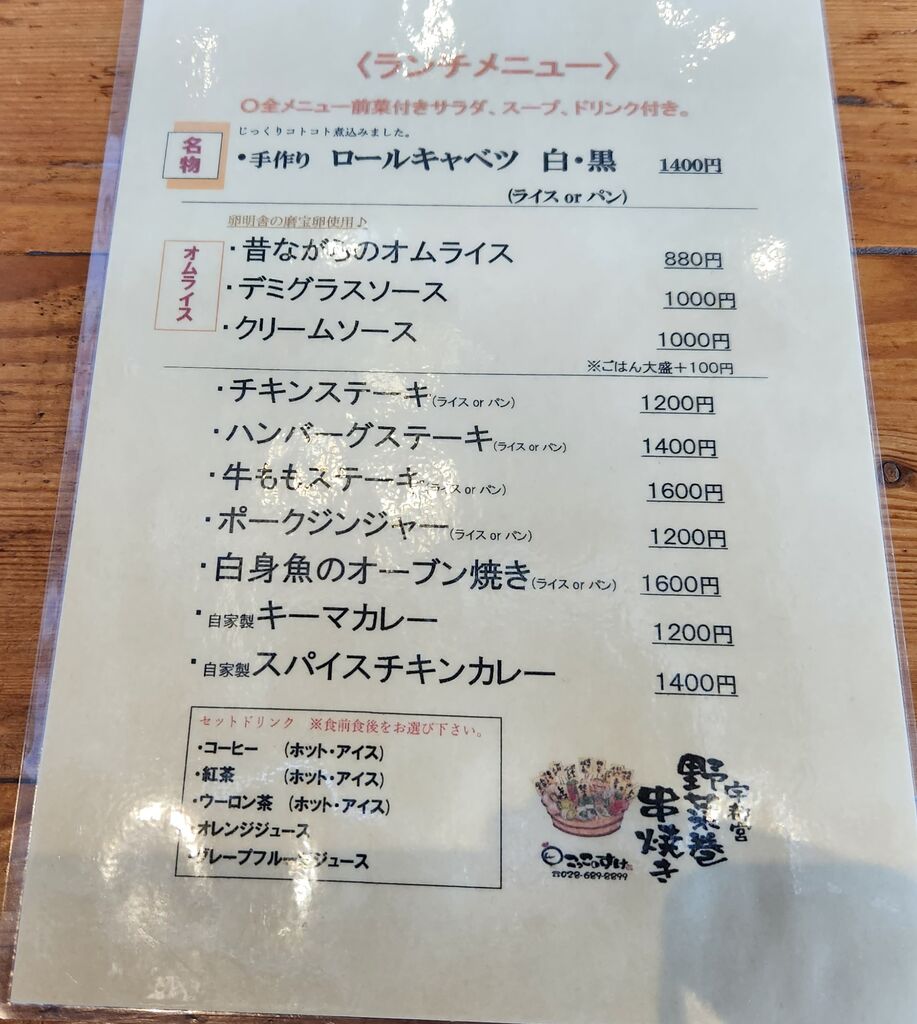 〈ランチメニュー〉
〇全メニュー前菜付きサラダ、スープ、ドリンク付き。
じっくりコトコト煮込みました。
名物
・手作り ロールキャベツ 白・黒 1400円
(ライス or パン)
卵明舎の磨宝卵使用♪
オムライス
・昔ながらのオムライス 880円
・デミグラスソース 1000円
・クリームソース 1000円
※ごはん大盛+100円
・チキンステーキ(ライス or パン) 1200円
・ハンバーグステーキ(ライス or パン) 1400円
・牛ももステーキ(ライス or パン) 1600円
・ポークジンジャー(ライス or パン) 1200円
・白身魚のオーブン焼き(ライス or パン) 1600円
・自家製キーマカレー 1200円
・自家製スパイスチキンカレー 1400円
セットドリンク ※食前食後をお選び下さい。
・コーヒー (ホット・アイス)
・紅茶 (ホット・アイス)
・ウーロン茶 (ホット・アイス)
・オレンジジュース
・グレープフルーツジュース
宇都宮
野菜巻
串焼き
こっこのすけ
☎028-689-8899